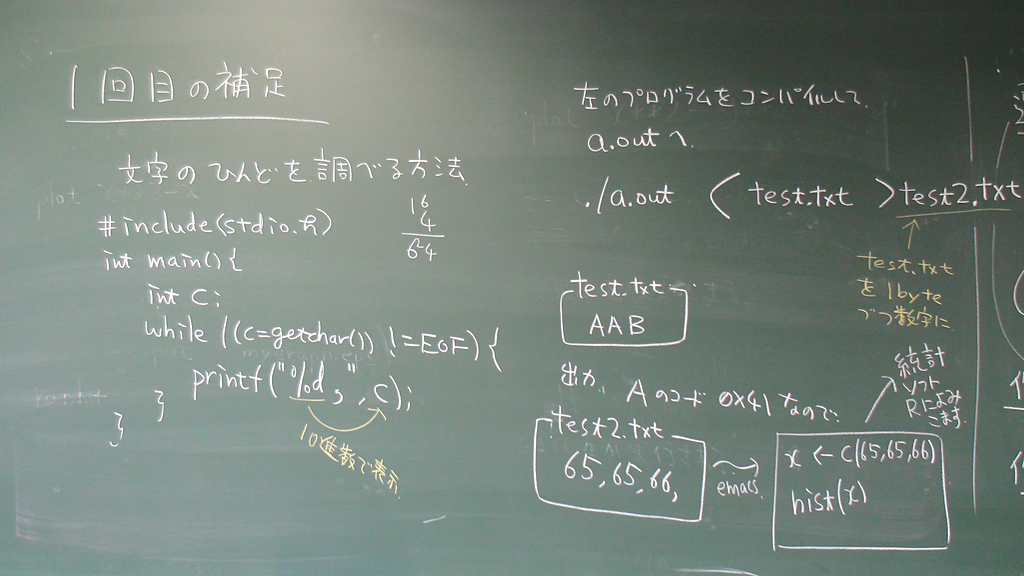 1回目の補足
文字のひんどを調べる方法
#include(stdio.h)
int main(){
int c;
while ((c=getchar()) !=EOF) {
printf("%d,",c);
}
}
10進数で表示
16
4
64
左のプログラムをコンパイルして
a.outへ
./a.out < test.txt > test2.txt
test.txt
を1byte
づつ数字に
test.txt
AAB
出力 Aのコード 0x41 なので
test2.txt
65,65,66,
emacs
統計
ソフト
Rによみ
こます
x ← c(65,65,66)
hist(x)